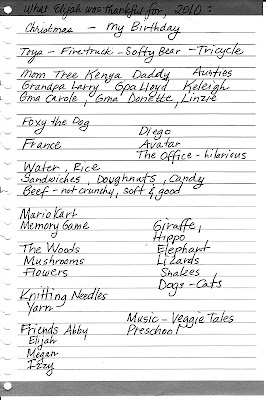 What Elijah was thankful for, 2010:
Christmas - My Birthday
Toys - Firetruck - Softy Bear - Tricycle
Mom Tree Kenya Daddy Aunties
Grandpa Larry Gpa Lloyd Keleigh
Gma Carole, Gma Donette, Linzie
Foxy the Dog
Diego
France Avatar
The Office - hilarious
Water, Rice
Sandwiches, Doughnuts, Candy
Beef - not crunchy, soft & good
Mario Kart
Memory Game Giraffe,
Hippo
The Woods Elephant
Mushrooms Lizards
Flowers Snakes,
Dogs - Cats
Knitting Needles
Yarn
Music - Veggie Tales
Friends Abby Preschool
Elijah
Megan
Izzy